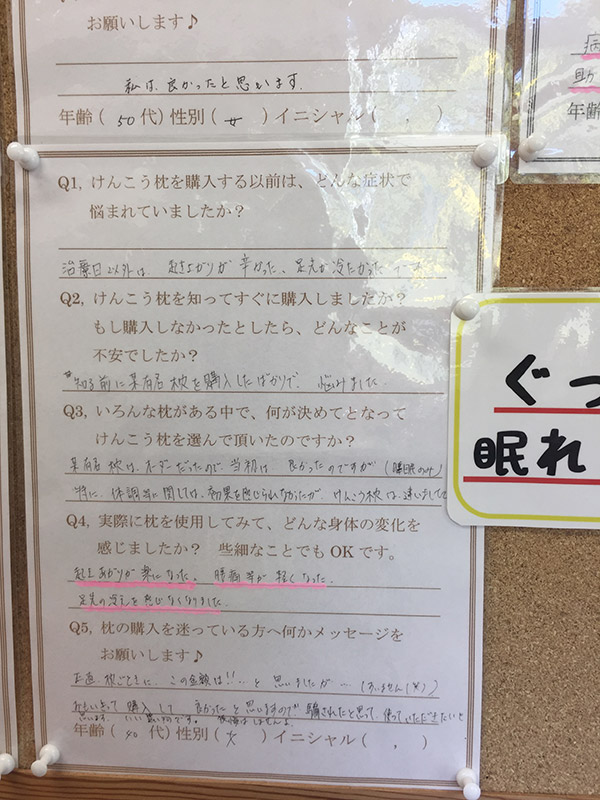 お願いします♪
私は、良かったと思います。
年齢( 50 代) 性別( 女 ) イニシャル( , )
病
助
年齢
Q1, けんこう枕を購入する以前は、どんな症状で
悩まれていましたか？
治療日以外は 起き上がりが辛かった、足先が冷たかった です
Q2, けんこう枕を知ってすぐに購入しましたか？
もし購入しなかったとしたら、どんなことが
不安でしたか？
知る前に某有名枕を購入したばかりで、悩みました
Q3, いろんな枕がある中で、何が決めてとなって
けんこう枕を選んで頂いたのですか？
某有名枕は、オーダーだったので、当初は 良かったのですが (睡眠のみ)
特に、体調等に関しては、効果を感じられなかったが、けんこう枕は、違いまして
Q4, 実際に枕を使用してみて、どんな身体の変化を
感じましたか？ 些細なことでも OK です。
起き上がりが楽になった。腰痛等が軽くなった。
足先の冷えを感じなくなりました。
Q5, 枕の購入を迷っている方へ何かメッセージを
お願いします♪
正直 枕ごときに この金額は!!…と 思いましたが …(すいません(笑))
おもいきって 購入して 良かったと思いますので、騙されたと思って、使っていただきたいと
思います。
年齢( 40 代) 性別( 女 ) イニシャル( , )
ぐっ
眠れ